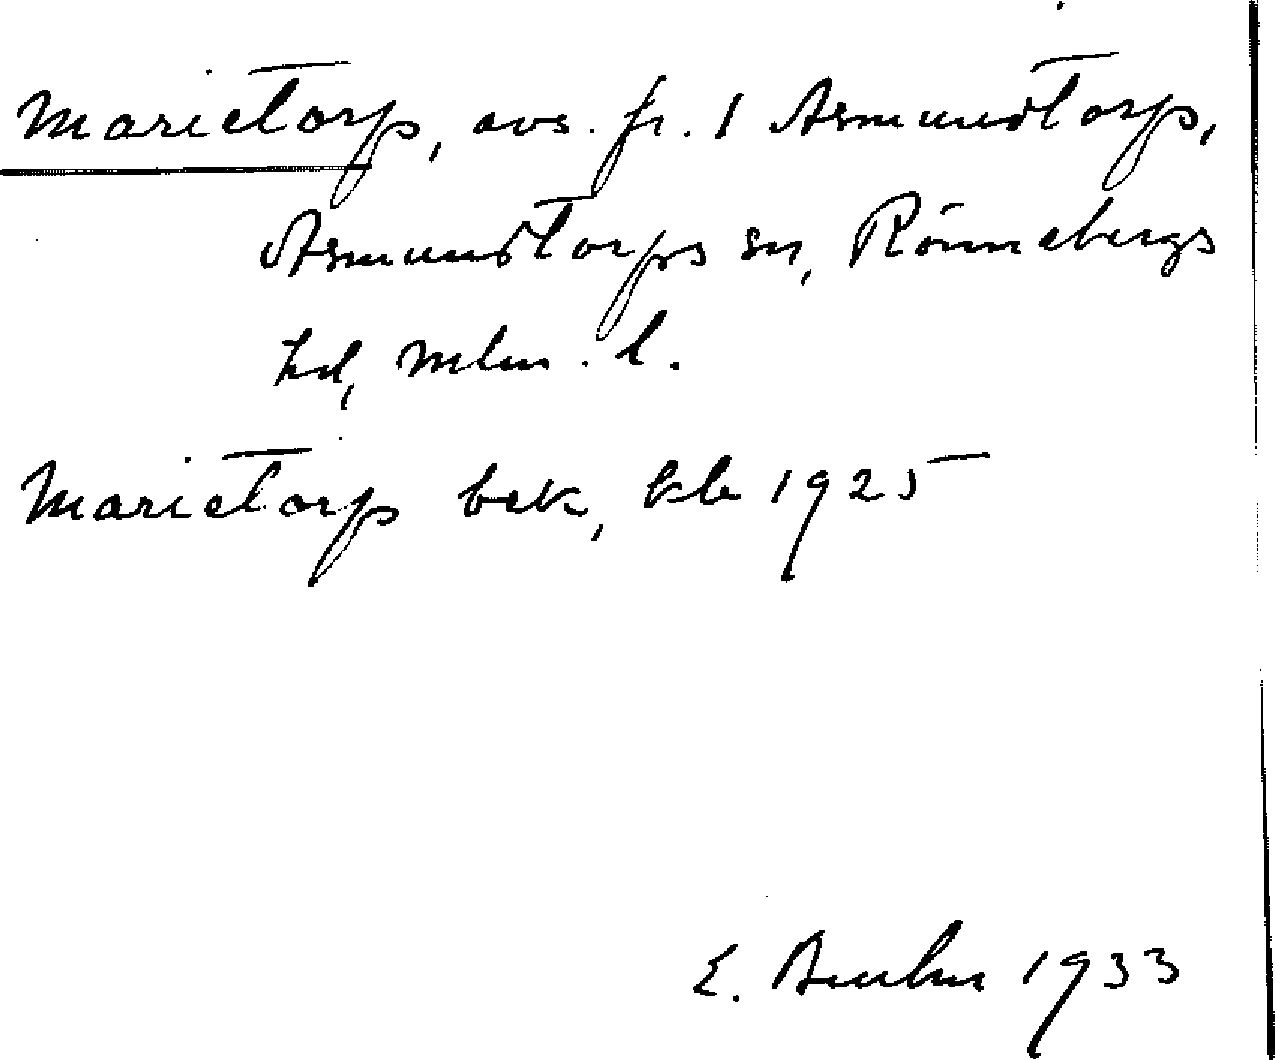 Marietorp, avs. fr. 1 Asmundtorp,
Asmundtorps sn, Rönnebergs
hd, Mlm. l.
Marietorp bek, kb 1925
E. 1933